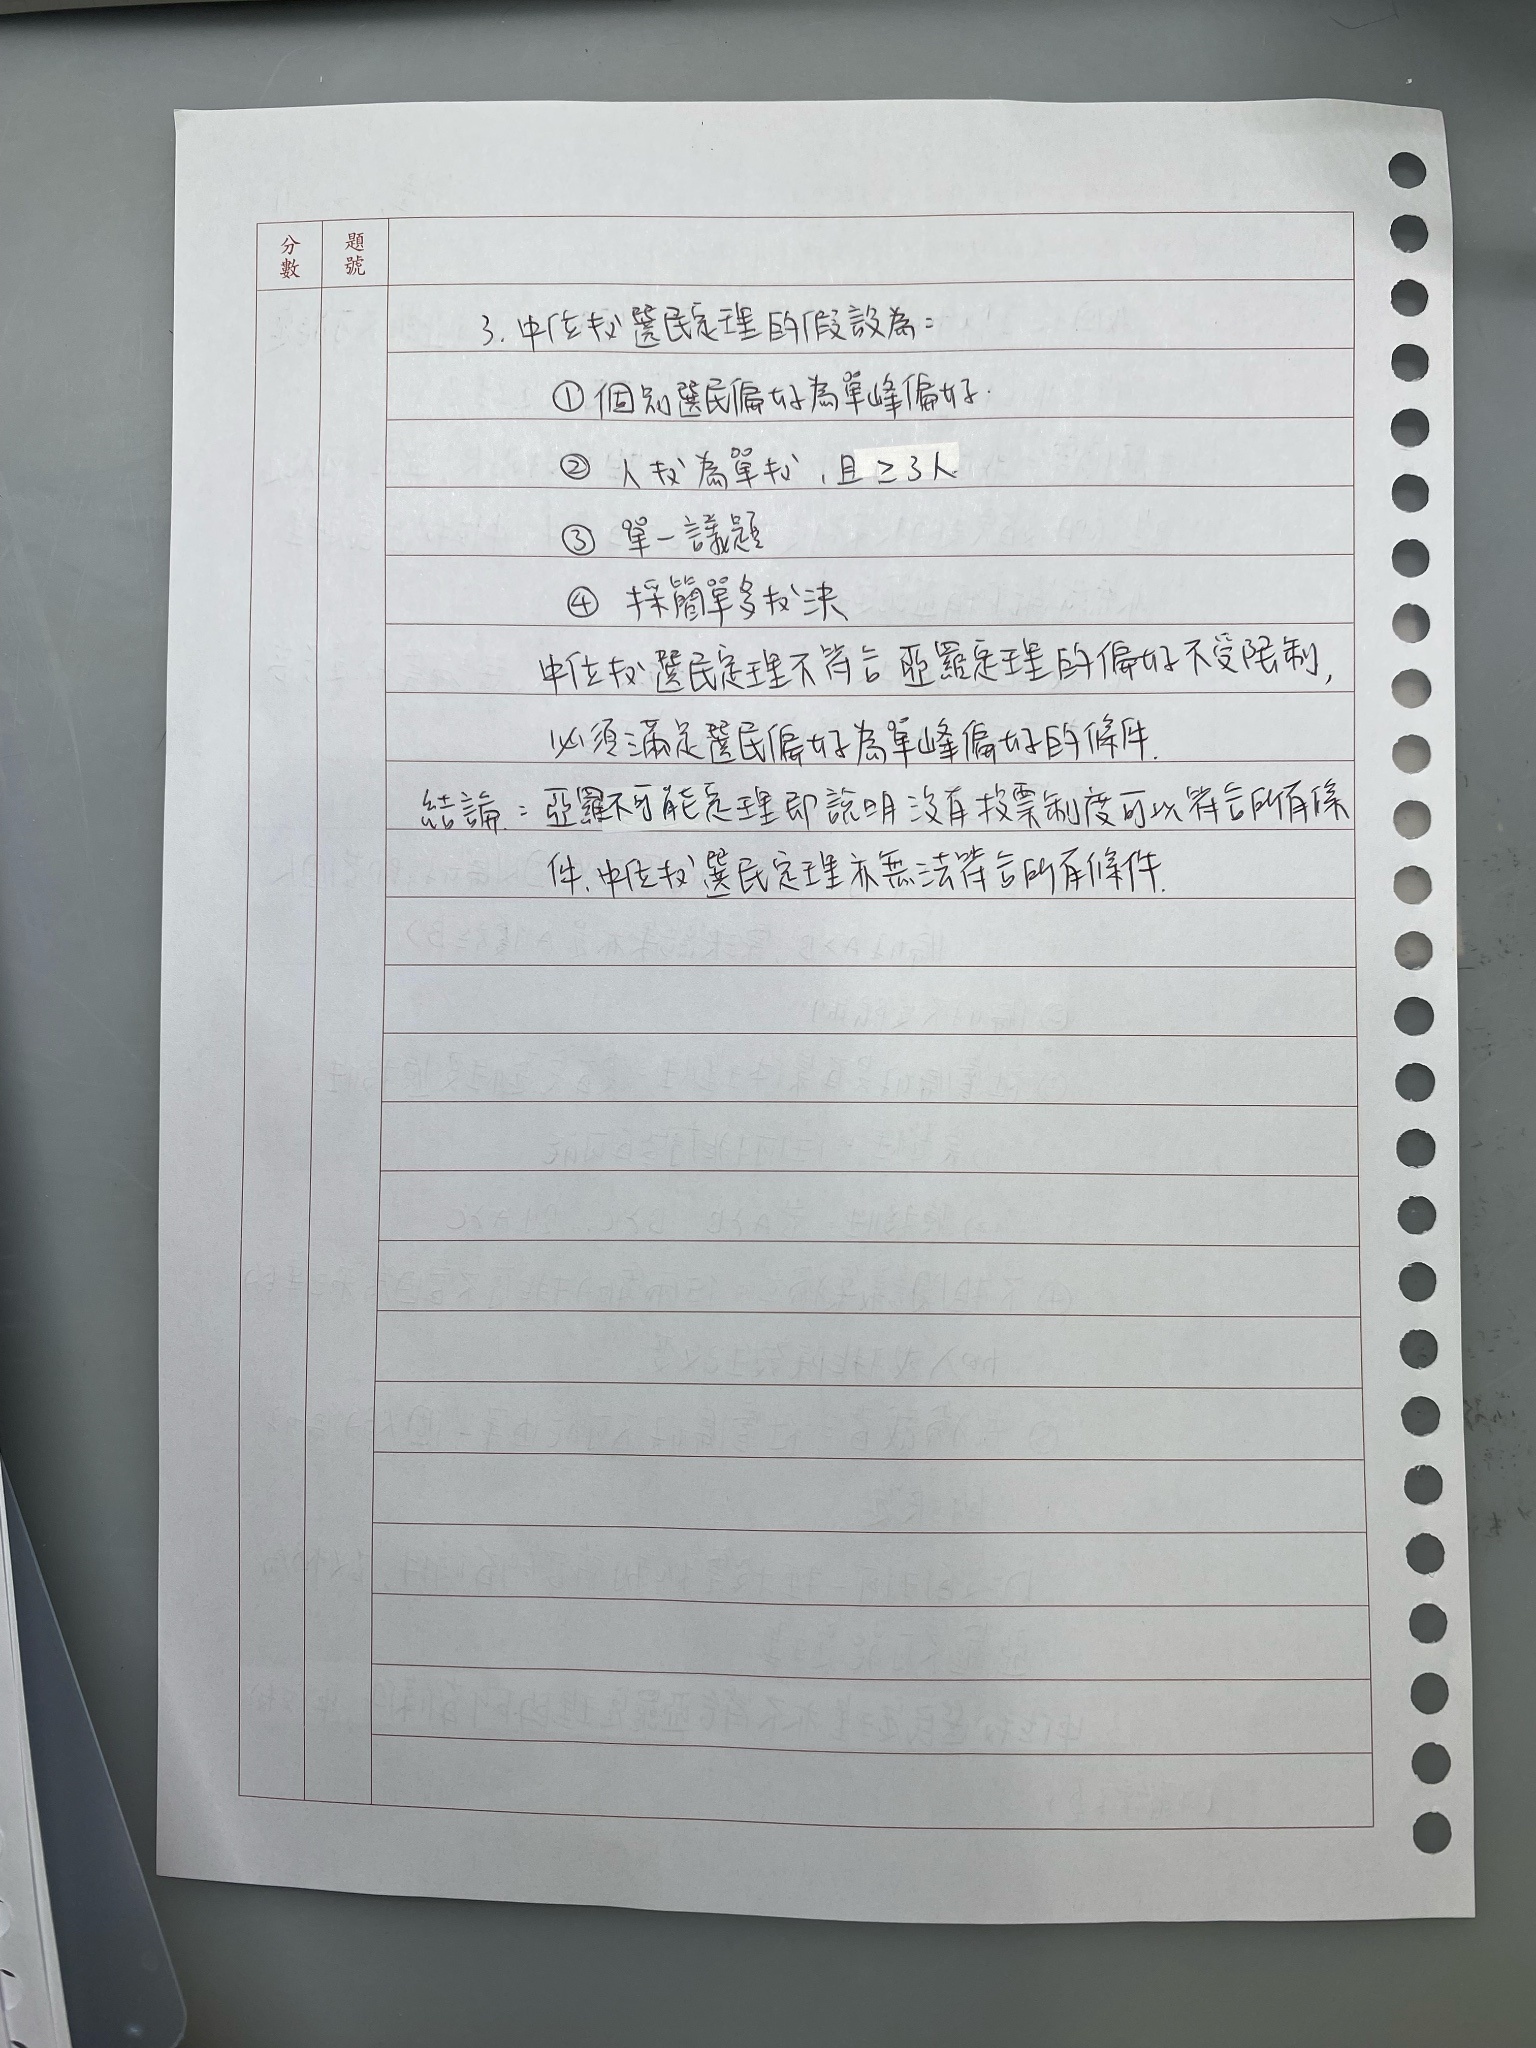 分數
題號
3. 中位數選民定理的假設為：
① 個別選民偏好為單峰偏好.
② 人數為單數，且≥3人.
③ 單一議題
④ 採簡單多數決
中位數選民定理不符合亞羅定理的偏好不受限制,
必須滿足選民偏好為單峰偏好的條件.
結論：亞羅不可能定理即說明沒有投票制度可以符合所有條
件.中位數選民定理亦無法符合所有條件.